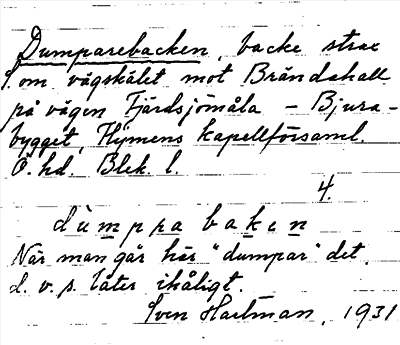 Dumparebacken, backe strax
S. om vägskälet mot Brändahall
på vägen Fjärdsjömåla – Bjura-
bygget, Flymens kapellförsaml.
Ö. hd. Blek. l.
4.
dùmppa baken
När man går här "dumpar" det,
d. v. s. låter ihåligt.
Sven Hartman, 1931